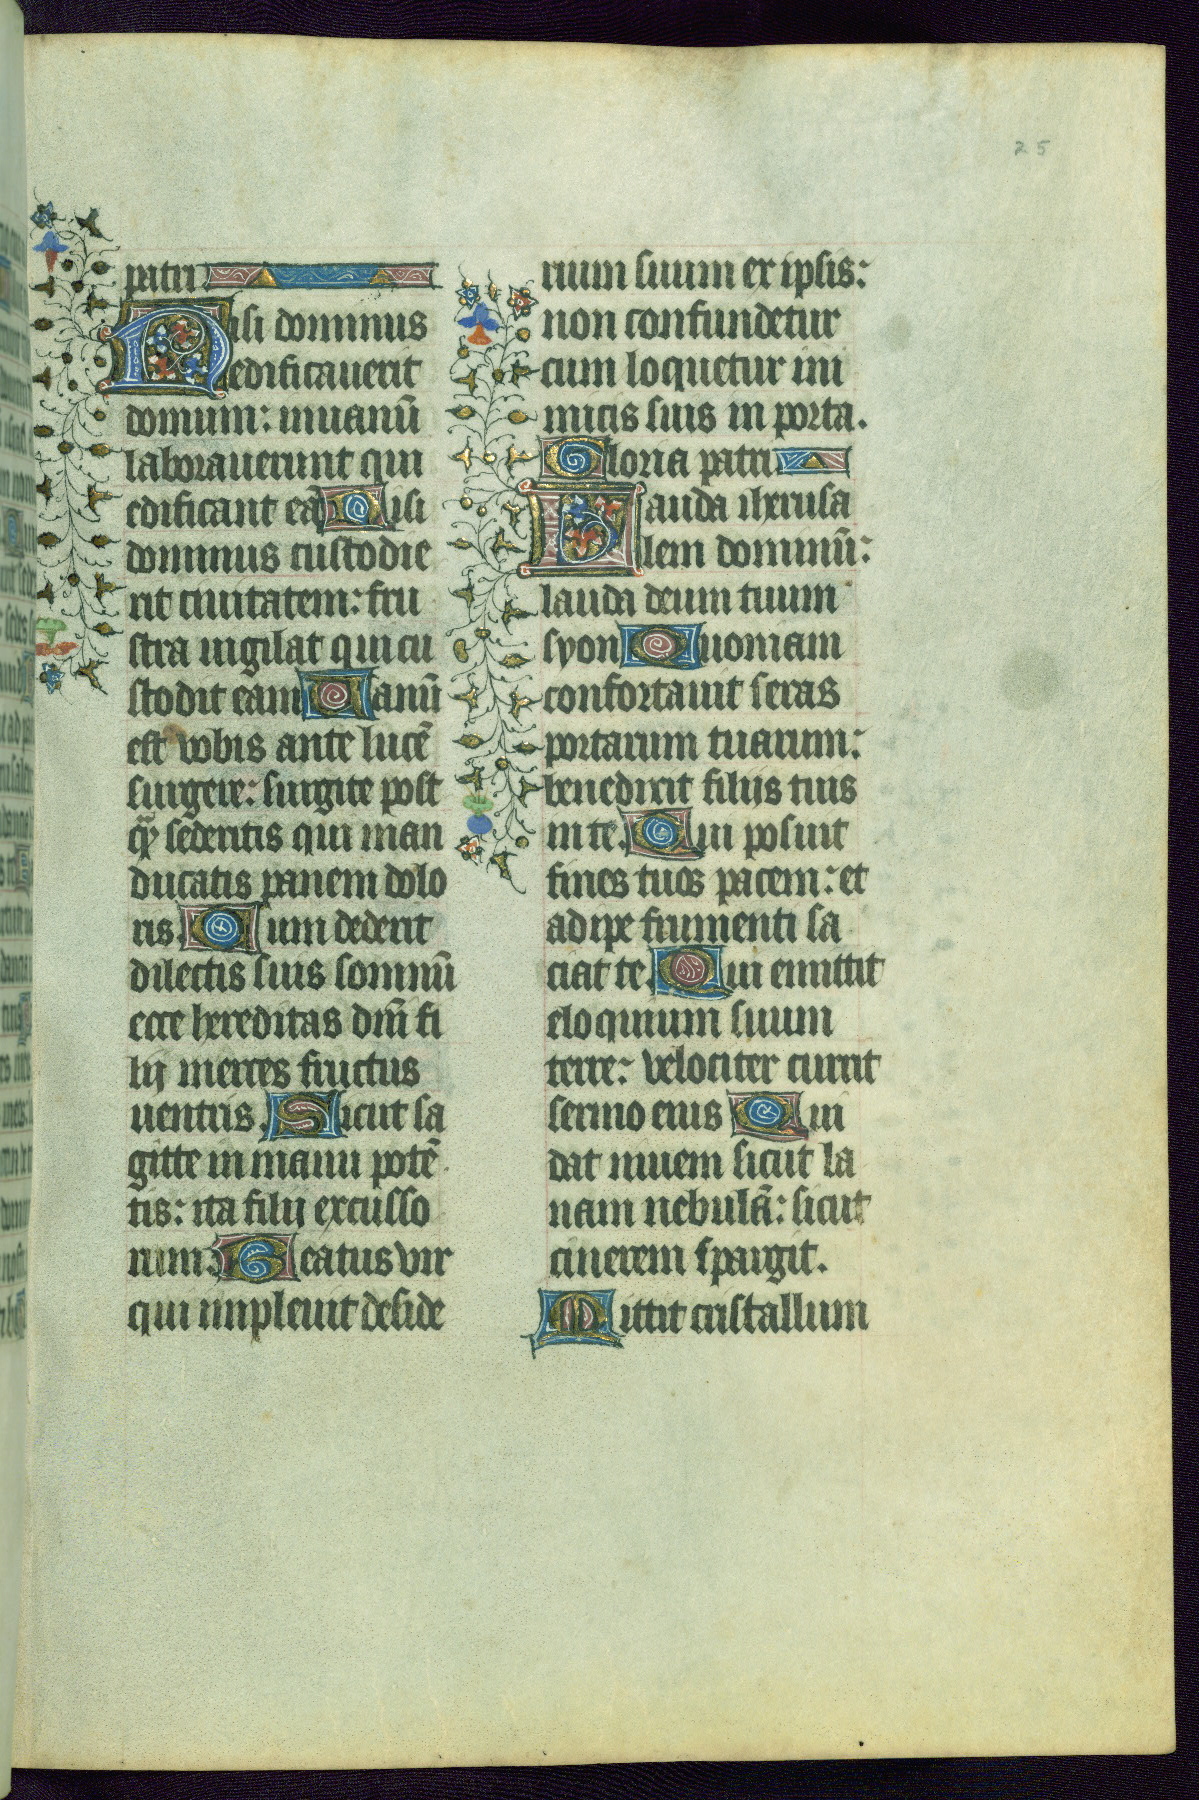 25
patri
Nisi dominus
edificauerit
domum: inuanū
laborauerunt qui
edificant eā Nisi
dominus custodie
rit ciuitatem: fru
stra uigilat qui cu
stodit eam Uanū
est vobis ante lucē
surgere: surgite post
q̄ sederitis qui man
ducatis panem dolo
ris. Cum dederit
dilectis suis somnū
ecce hereditas dn̄i fi
lij merces fructus
uentris. Sicut sa
gitte in manu potē
tis: ita filij excusso
rum: Beatus vir
qui impleuit deside
rium suum ex ipsis:
non confundetur
cum loquetur ini
micis suis in porta.
Gloria patri
Lauda iherusa
lem dominū:
lauda deum tuum
syon Quoniam
confortauit seras
portarum tuarum:
benedixit filijs tuis
in te. Qui posuit
fines tuos pacem: et
adipe frumenti sa
ciat te. Qui emittit
eloquium suum
terre: velociter currit
sermo eius Qui
dat niuem sicut la
nam nebulā: sicut
cinerem spargit.
Mittit cristallum